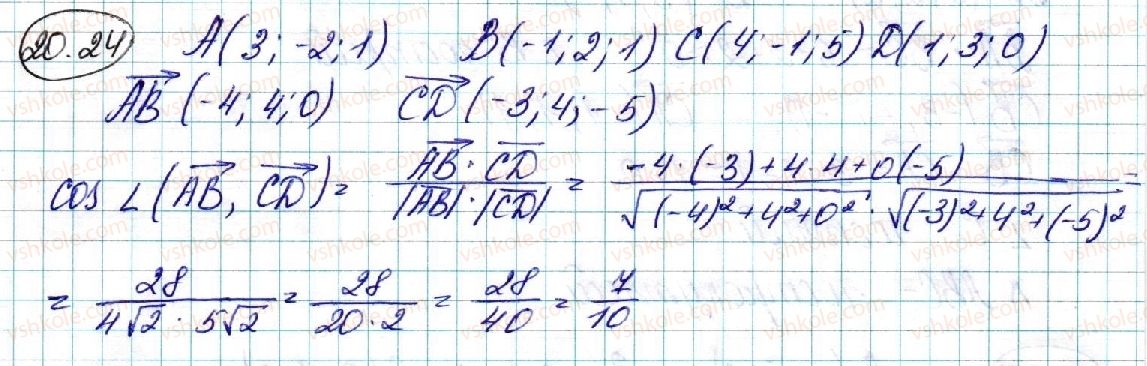 20.24 A(3; -2; 1) B(-1; 2; 1) C(4; -1; 5) D(1; 3; 0)
AB⃗ (-4; 4; 0) CD⃗ (-3; 4; -5)
cos ∠(AB⃗, CD⃗) = (AB⃗ · CD⃗)/(|AB⃗| · |CD⃗|) = (-4·(-3)+4·4+0(-5))/(√((-4)²+4²+0²) · √((-3)²+4²+(-5)²)) =
= 28/(4√2 · 5√2) = 28/(20·2) = 28/40 = 7/10